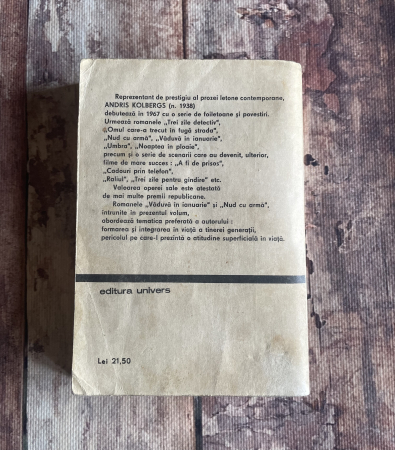 Reprezentant de prestigiu al prozei letone contemporane,
ANDRIS KOLBERGS (n. 1938)
debutează în 1967 cu o serie de foiletoane și povestiri.
Urmează romanele „Trei zile detectiv",
„Omul care-a trecut în fugă strada",
„Nud cu armă", „Văduvă în ianuarie",
„Umbra", „Noaptea în ploaie",
precum și o serie de scenarii care au devenit, ulterior,
filme de mare succes : „A fi de prisos",
„Cadouri prin telefon",
„Raliul", „Trei zile pentru gîndire" etc.
Valoarea operei sale este atestată
de mai multe premii republicane.
Romanele „Văduvă în ianuarie" și „Nud cu armă",
întrunite în prezentul volum,
abordează tematica preferată a autorului :
formarea și integrarea în viață a tinerei generații,
pericolul pe care-l prezintă o atitudine superficială în viață.
editura univers
Lei 21,50